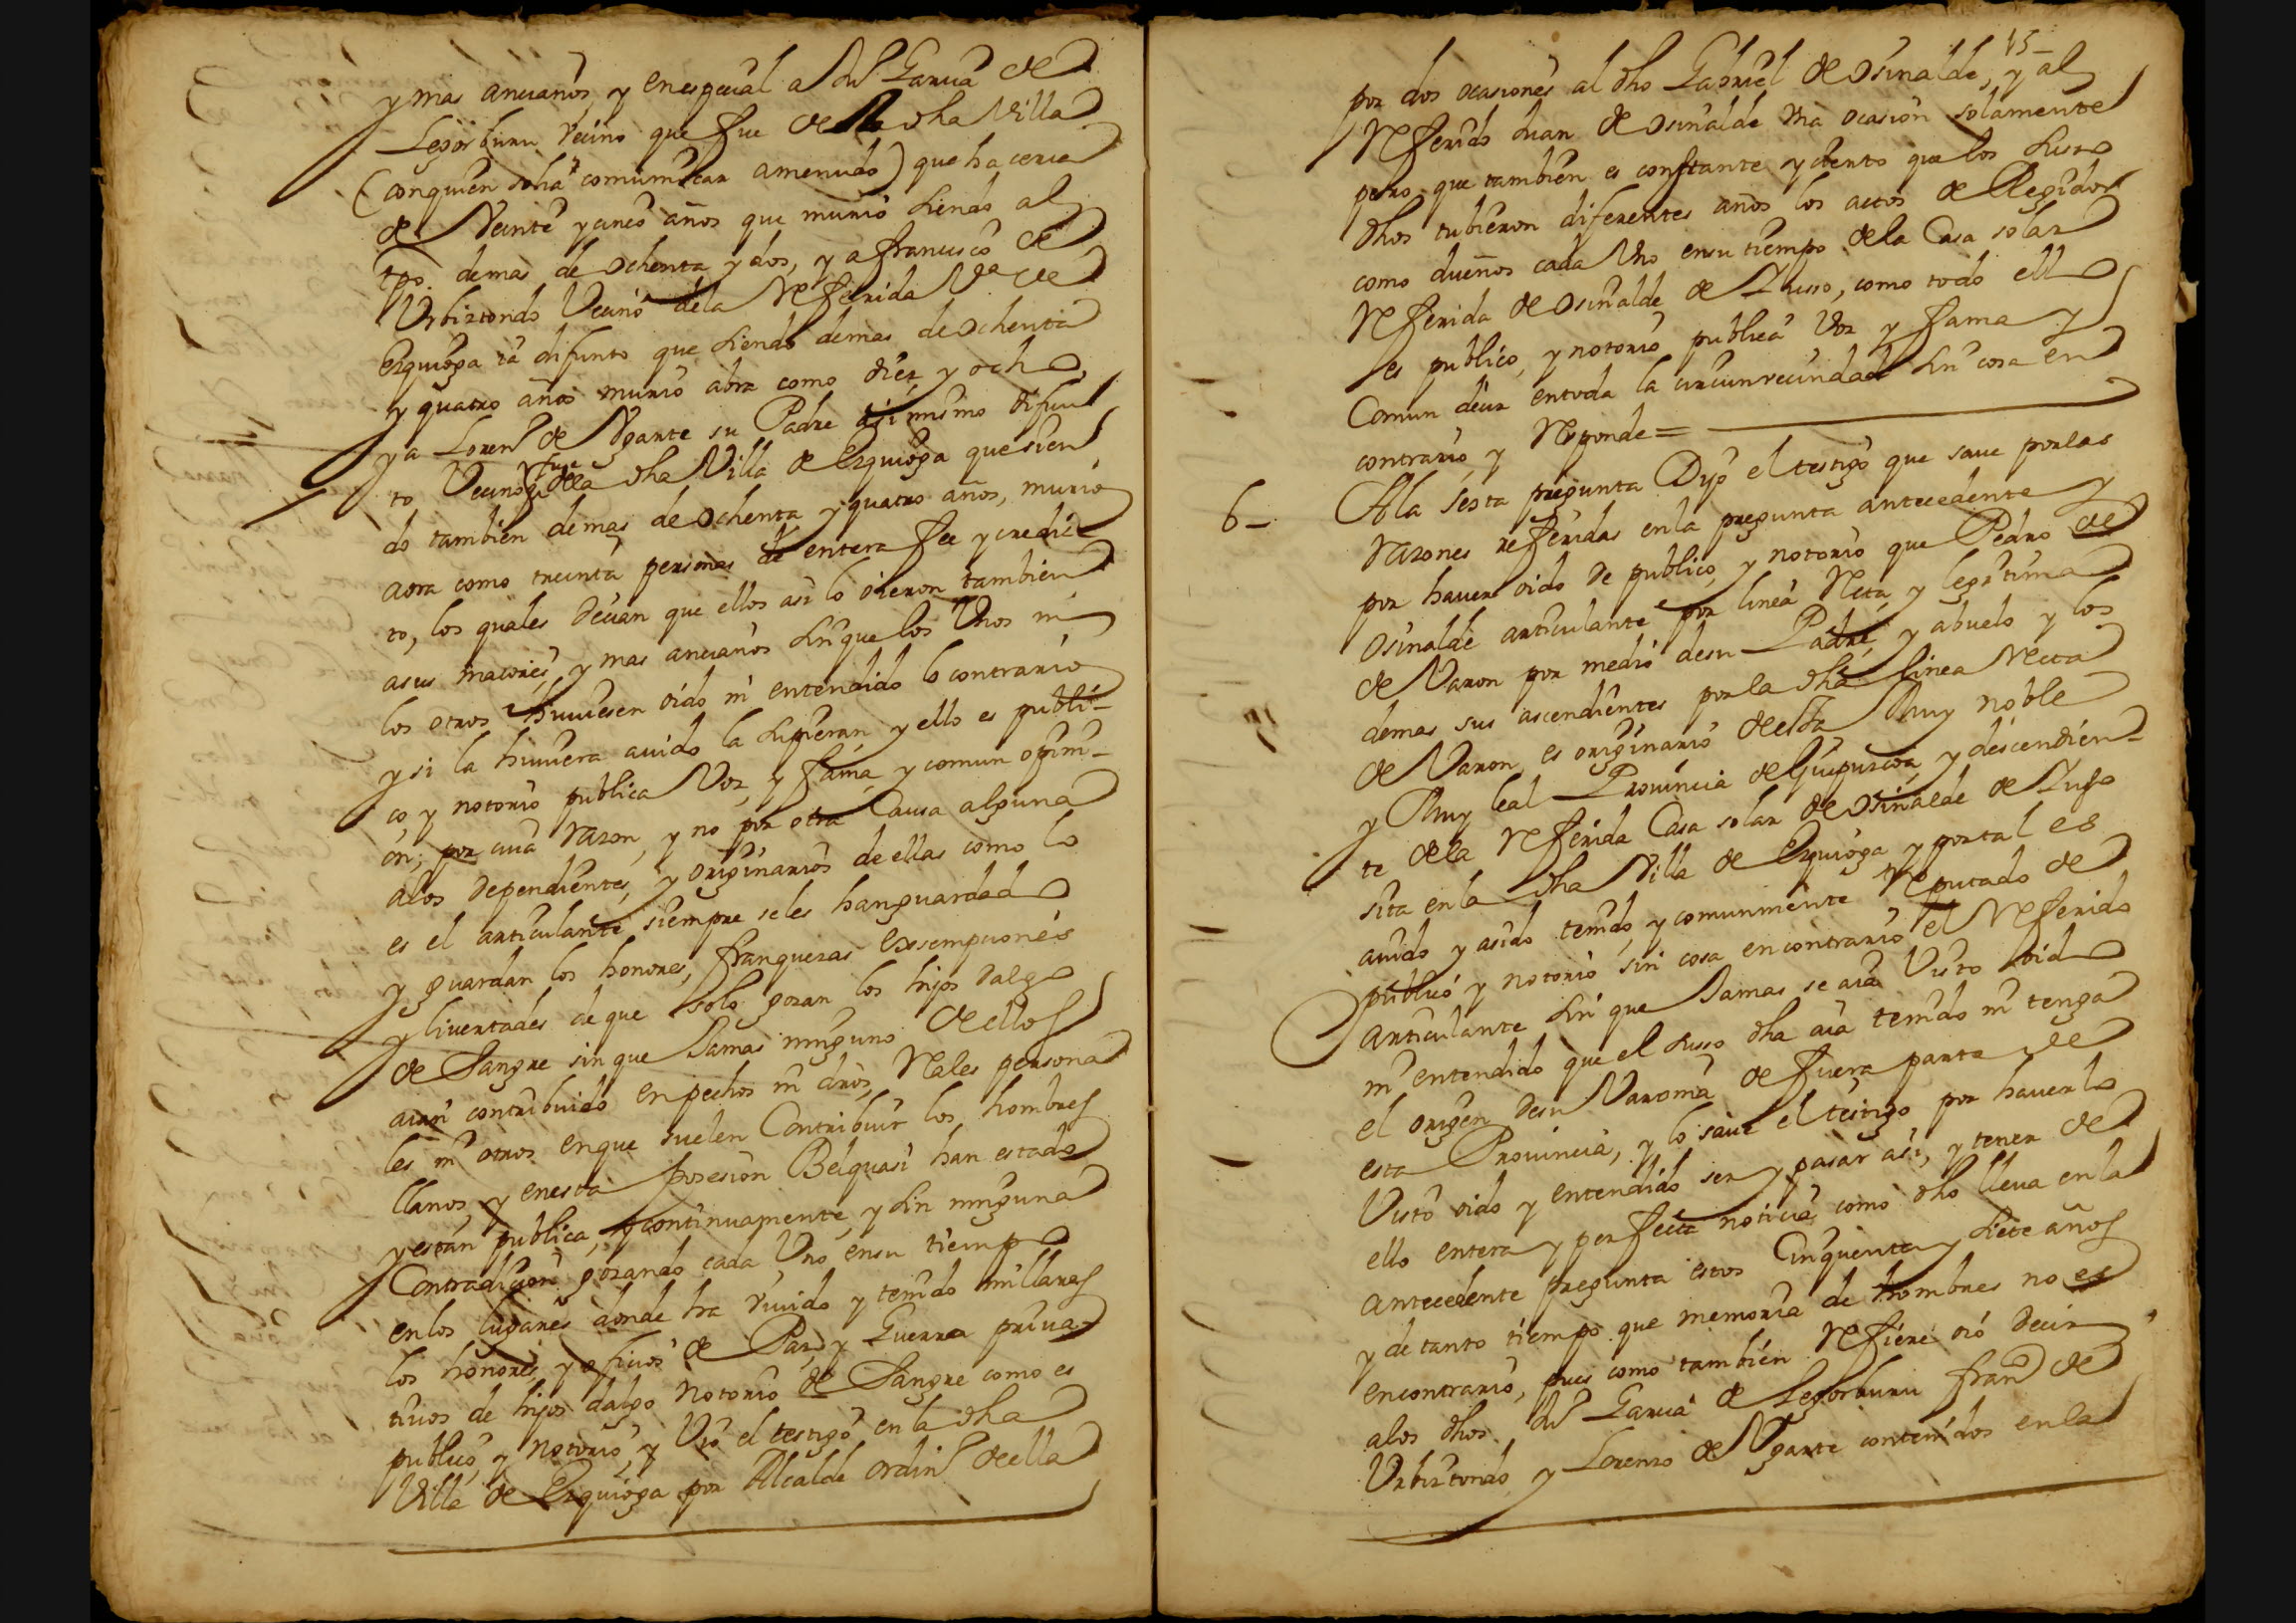 y mas ancianos, y en especial a Dn Garcia de
Legorburu Vecino que fue de la dha Villa
(con quien solia comunicar amenudo) que hacerca
de Veinte y cinco años que murio siendo al
tpo. demas de ochenta y dos, y a francisco de
Urbiztondo Vecino dela Referida Va de
Ezquioga ia difunto que siendo demas de ochenta
y quatro años murio abra como diez y ocho
y a Loren.º de Ugarte su Padre asi mismo difun
to Vecino q fue dela dha Villa de Ezquioga que sien
do tambien demas de ochenta y quatro años, murio
aora como treinta personas de entera fee y credi
to, los quales decian que ellos asi lo oieron tambien
asus maiores, y mas ancianos sin que los Unos ni
los otros huuiesen oido ni entendido lo contrario
y si la huuiera auido la supieran y ello es publi-
co y notorio publica Voz, y fama, y comun opini-
on; por cuia razon, y no por otra Causa alguna
alos dependientes, y originarios de ellas como lo
es el articulante siempre seles hanguardado
y guardan los honores, franquezas exsempciones
y liuertades de que solo gozan los hijos dalgo
de Sangre sin que Jamas ninguno de ellos
aian contribuido en pechos ni dros Reales persona
les ni otros en que suelen Contribuir los hombres
llanos, y enesta posesion Belquasi han estado
y estan publica, y continuamente, y sin ninguna
Contradicion gozando cada Uno ensu tiempo
enlos lugares donde ha viuido y tenido millares
los honores, y oficios de Paz, y Guerra priua-
tiuos de hijos dalgo notorio de Sangre como es
publico, y notorio, y Vio el testigo en la dha
Villa de Ezquioga por Alcalde ordin.º de ella
15-
por dos ocasiones al dho Gabriel de Osinalde, y al
Referido Juan de Osinalde Una ocasion solamente
pero que tambien es constante y cierto que los suso
dhos tubieron diferentes años los actos de Regidor
como dueños cada Uno ensu tiempo dela Casa solar
Referida de Osinalde de Suso, como todo ello
es publico, y notorio publica Voz y fama y
Comun decir entoda la circunvecindad sin cosa en
contrario y Responde=
6- Ala sesta pregunta Dijo el testigo que saue por las
razones referidas enla pregunta antecedente y
por hauer oido de publico, y notorio que Pedro de
Osinalde articulante por linea Recta, y legitima
de Varon por medio desu Padre, y abuelo y los
demas sus ascendientes por la dha linea Recta
de Varon es originario de esta Muy noble
y Muy leal Prouincia de Guipuzcoa, y descendien-
te dela Referida Casa solar de Osinalde de Suso
sita en la dha Villa de Ezquioga y portal es
auido y asido tenido, y comunmente Reputado de
publico y notorio sin cosa en contrario el Referido
articulante sin que Jamas se aia Visto oido
ni entendido que el suso dho aia tenido ni tenga
el origen desu Varonia de fuera parte de
esta Prouincia, y lo saue el testigo por hauerlo
Visto oido y entendido ser y pasar asi, y tener de
ello entera y perfecta noticia como dho lleua en la
antecedente pregunta estos Cinquenta y siete años
y de tanto tiempo que memoria de hombres no es
encontrario, pues como tambien Refiere oió decir
alos dhos Dn Garcia de Legorburu Fran.co de
Urbiztondo, y Lorenzo de Ugarte contenidos en la